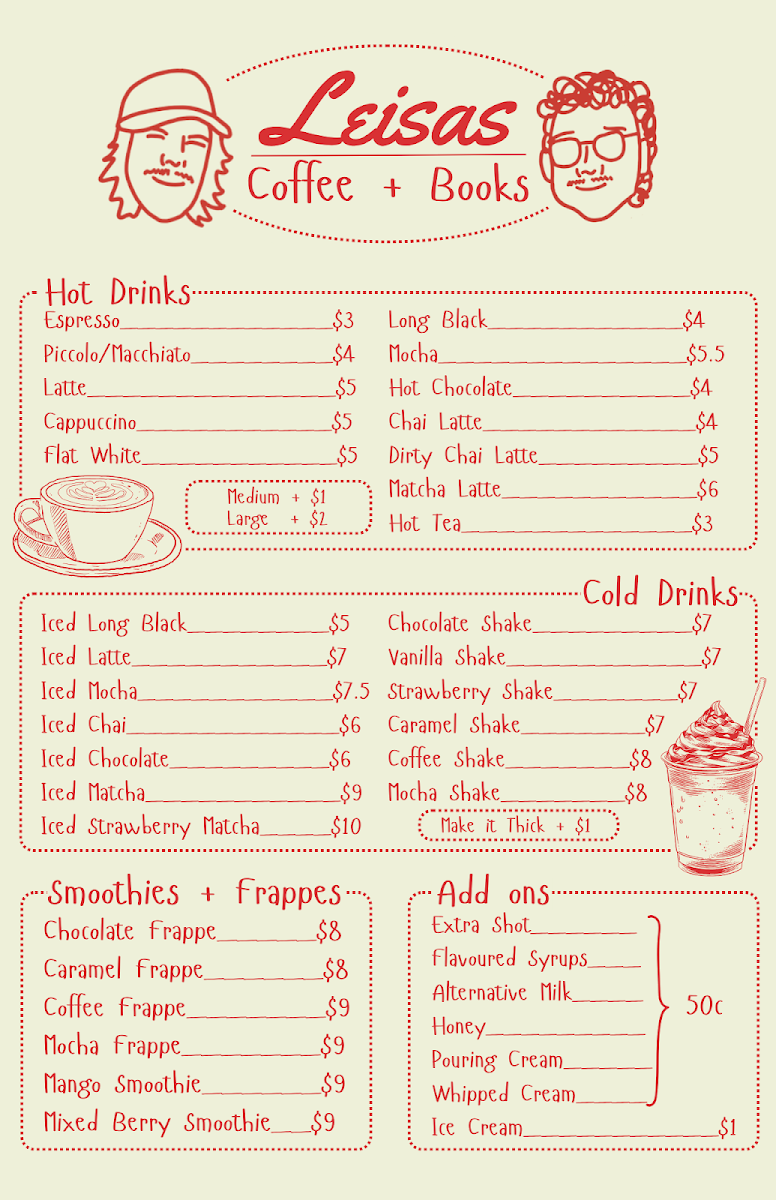 Leisas
Coffee + Books
Hot Drinks
Espresso $3
Piccolo/Macchiato $4
Latte $5
Cappuccino $5
Flat White $5
Medium + $1
Large + $2
Long Black $4
Mocha $5.5
Hot Chocolate $4
Chai Latte $4
Dirty Chai Latte $5
Matcha Latte $6
Hot Tea $3
Cold Drinks
Iced Long Black $5
Iced Latte $7
Iced Mocha $7.5
Iced Chai $6
Iced Chocolate $6
Iced Matcha $9
Iced Strawberry Matcha $10
Chocolate Shake $7
Vanilla Shake $7
Strawberry Shake $7
Caramel Shake $7
Coffee Shake $8
Mocha Shake $8
Make it Thick + $1
Smoothies + Frappes
Chocolate Frappe $8
Caramel Frappe $8
Coffee Frappe $9
Mocha Frappe $9
Mango Smoothie $9
Mixed Berry Smoothie $9
Add ons
Extra Shot
Flavoured Syrups
Alternative Milk
Honey
Pouring Cream
Whipped Cream
50c
Ice Cream $1